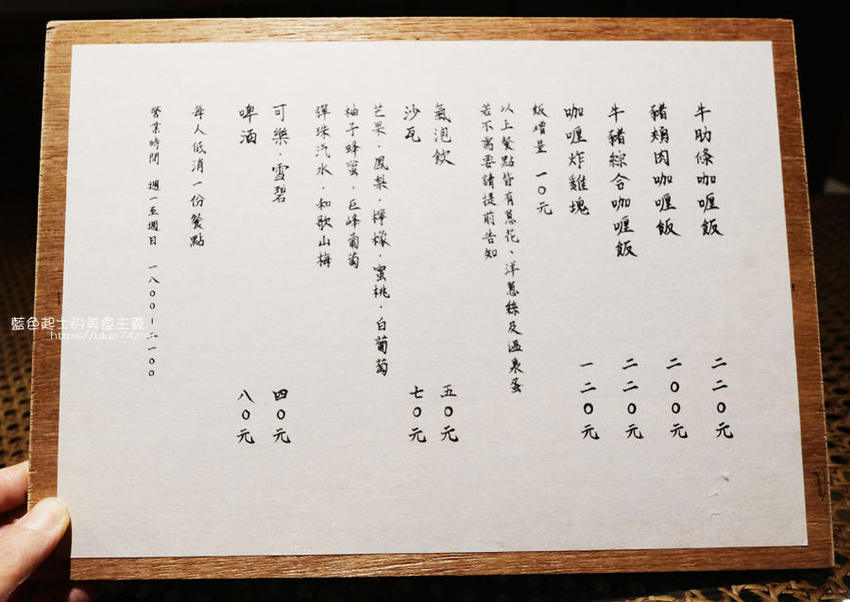 牛肋條咖喱飯 二二〇元
豬頰肉咖喱飯 二〇〇元
牛豬綜合咖喱飯 二二〇元
咖喱炸雞塊 一二〇元
飯增量 一〇元
以上餐點皆有蔥花、洋蔥絲及溫泉蛋
若不需要請提前告知
氣泡飲 五〇元
沙瓦 七〇元
芒果·鳳梨·檸檬·蜜桃·白葡萄
柚子蜂蜜·巨峰葡萄
彈珠汽水·和歌山梅
可樂·雪碧 四〇元
啤酒 八〇元
每人低消一份餐點
營業時間 週一至週日 一八〇〇-二一〇〇
藍色起士的美食主義
https://blue74.net